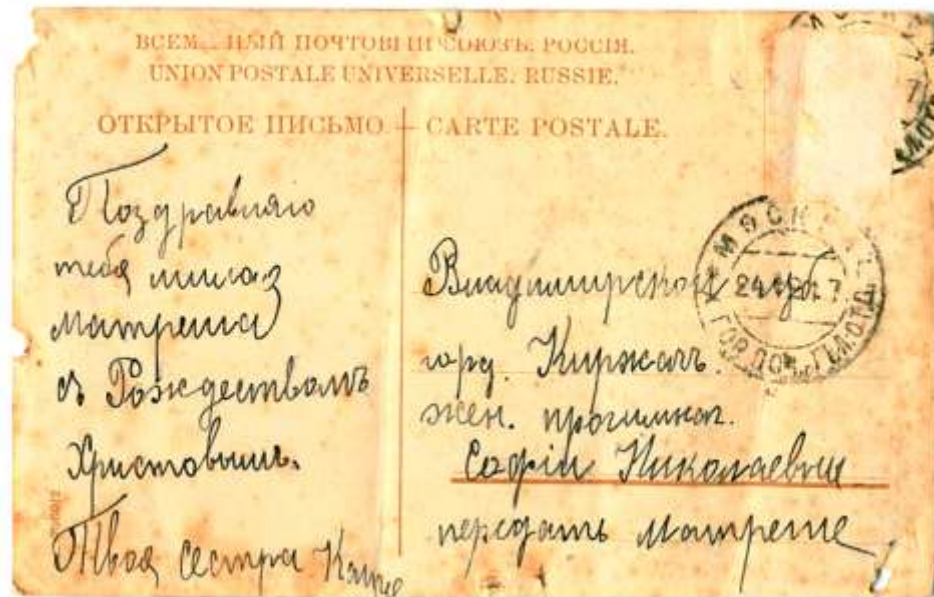 ПОЧТОВЫЙ СОЮЗЪ. РОССІЯ.
UNION POSTALE UNIVERSELLE. RUSSIE.
ОТКРЫТОЕ ПИСЬМО. — CARTE POSTALE.
Поздравляю
тебя милая
Матреша
съ Рождествомъ
Христовымъ.
Твоя сестра Катя
Владимирской губ.
гор. Киржачъ.
жен. прогимназ.
Софіи Николаевны
передать Матреше
МОСКВА
ГОРОД.